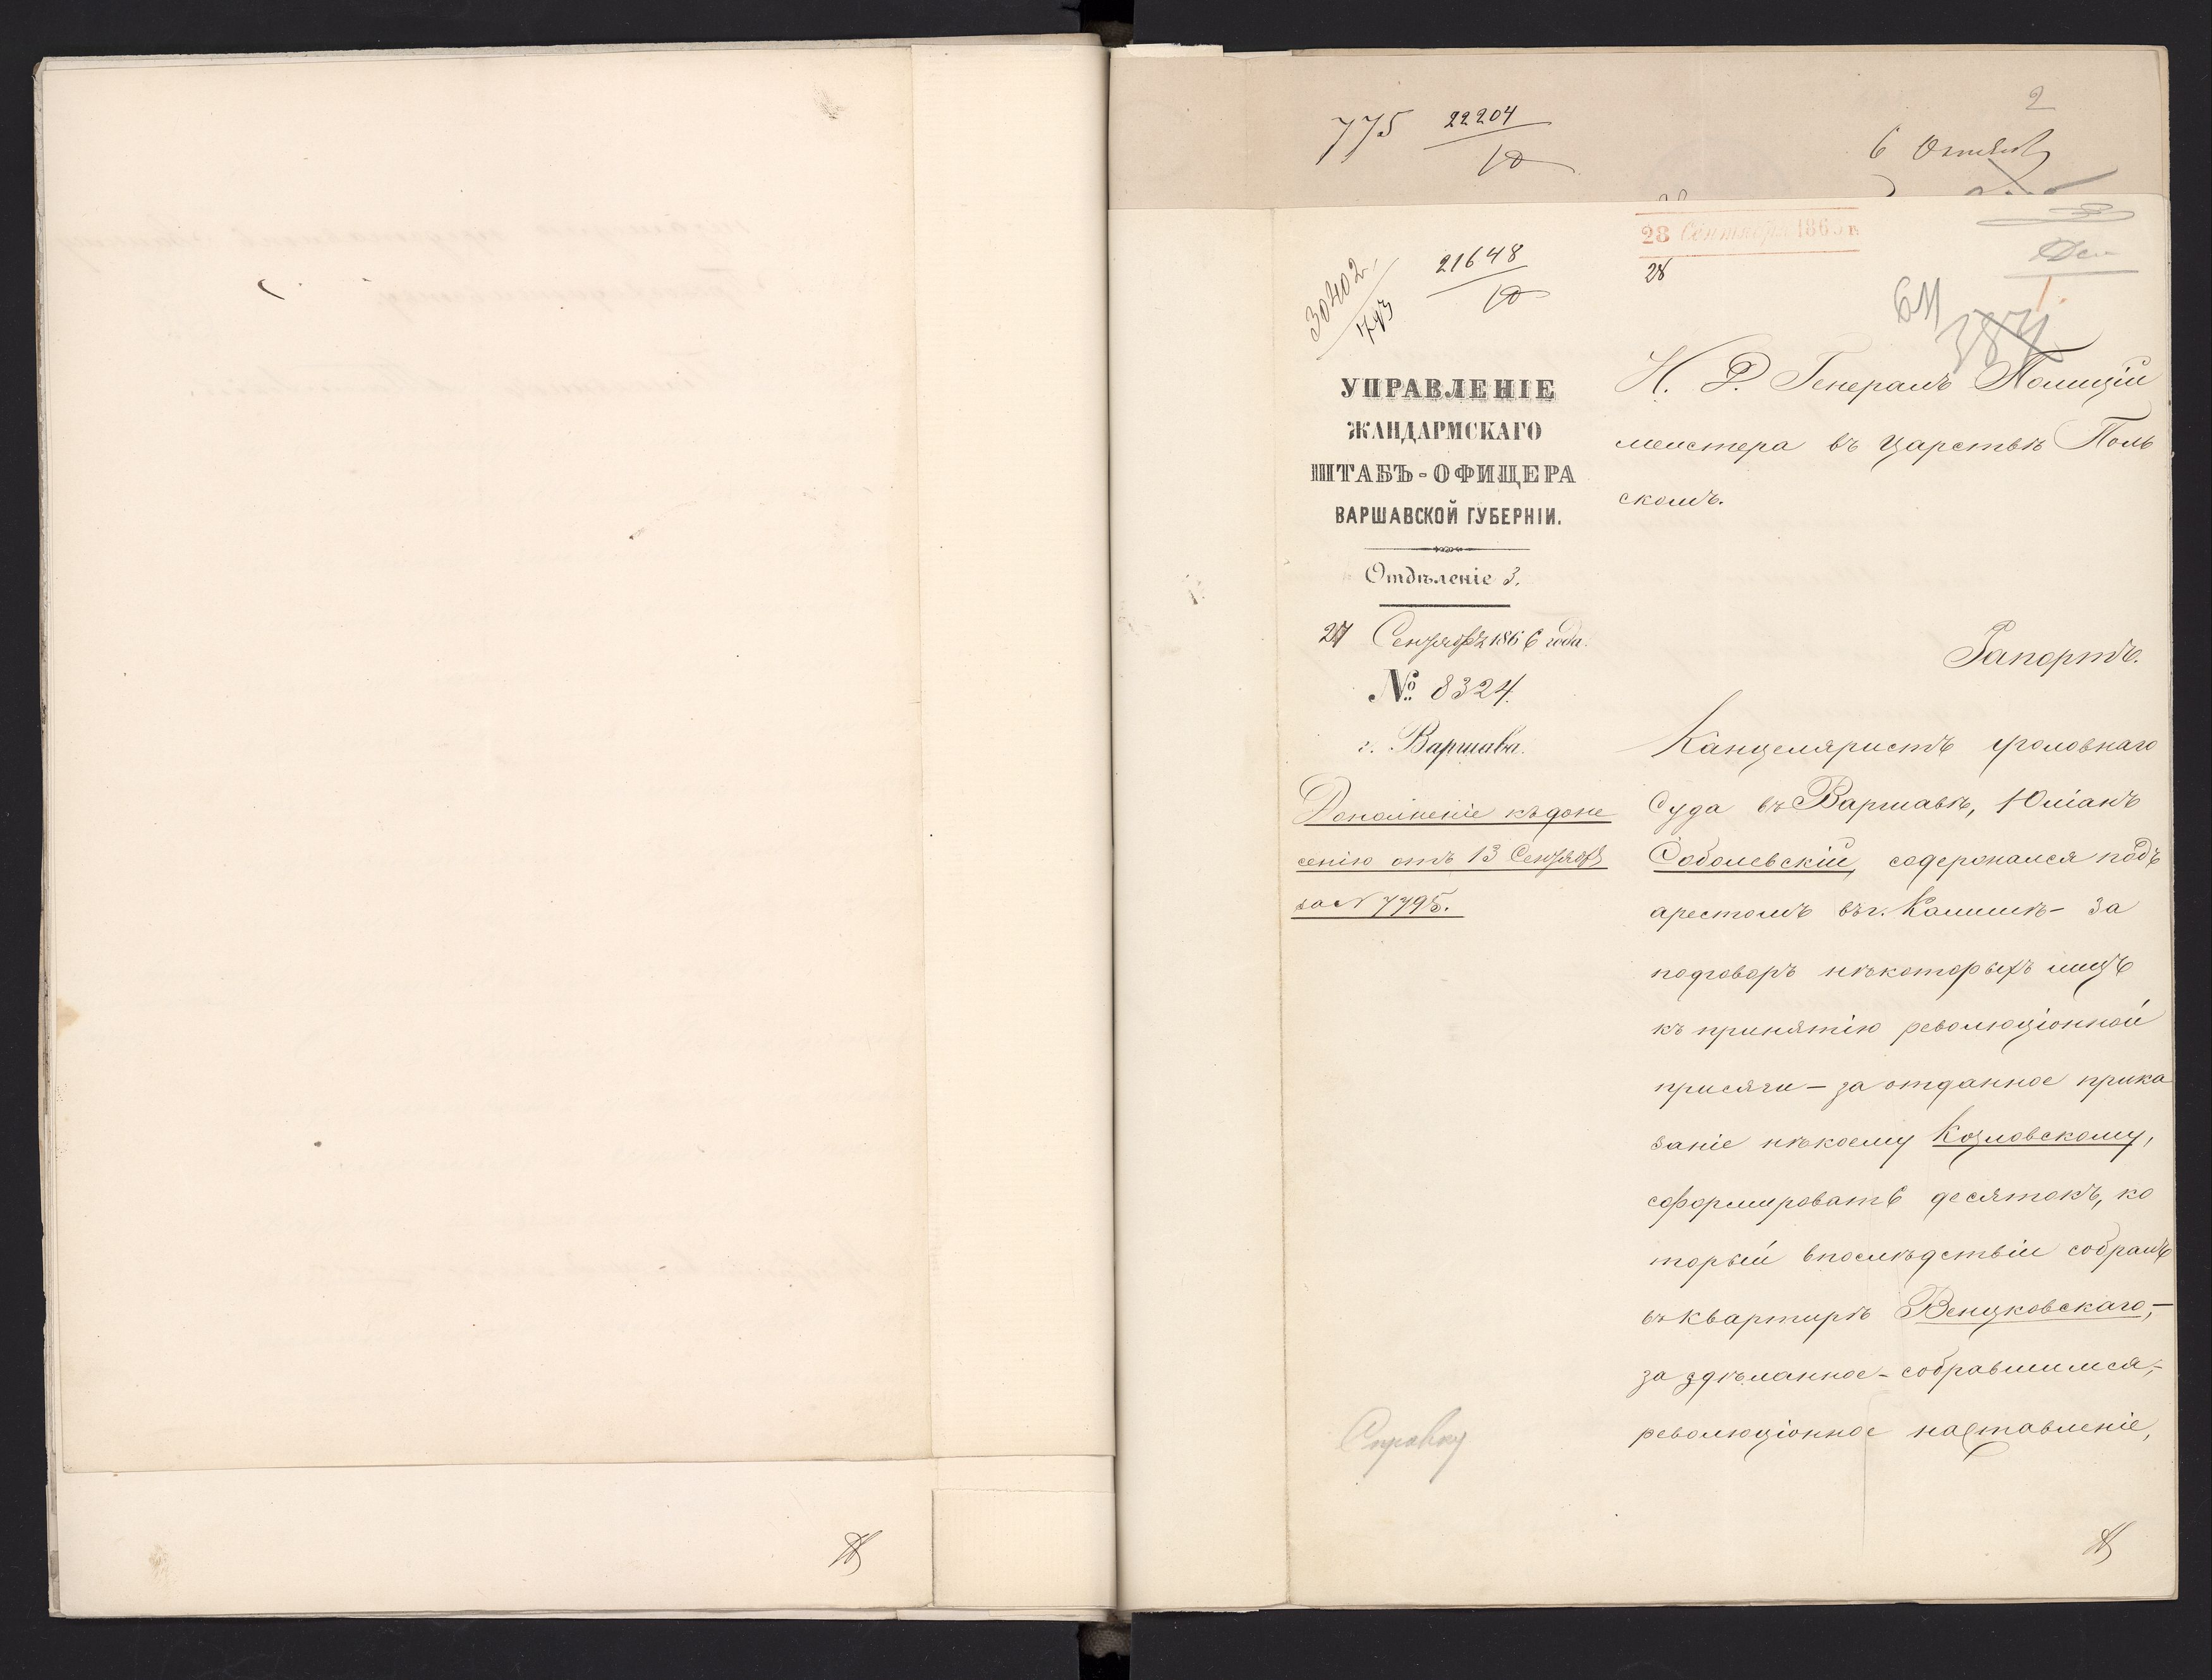 2
775 22204
10
6 Октяб
28 Сентября 186 г.
28
30402
1773
21648
10
611
387
УПРАВЛЕНІЕ
ЖАНДАРМСКАГО
ШТАБЪ-ОФИЦЕРА
ВАРШАВСКОЙ ГУБЕРНІИ.
Отдѣленіе 3.
27 Сентября 1866 года.
№ 8324.
г. Варшава.
Дополненіе къ доне
сенію отъ 13 Сентября
за N 7795.
Справку
И. Д. Генералъ Полиціи
мейстера въ Царствѣ Поль
скомъ.
Рапортъ.
Канцеляристъ уголовнаго
Суда въ Варшавѣ, Юліанъ
Соболевскій, содержался подъ
арестомъ въ г. Калишѣ – за
подговоръ нѣкоторыхъ лицъ
къ принятію революціонной
присяги – за отданное прика
заніе нѣкоему Козловскому,
сформировать десятокъ, ко
торый впослѣдствіи собралъ
въ квартирѣ Венцковскаго, –
за здѣланное – собравшимся, –
революціонное наставленіе,